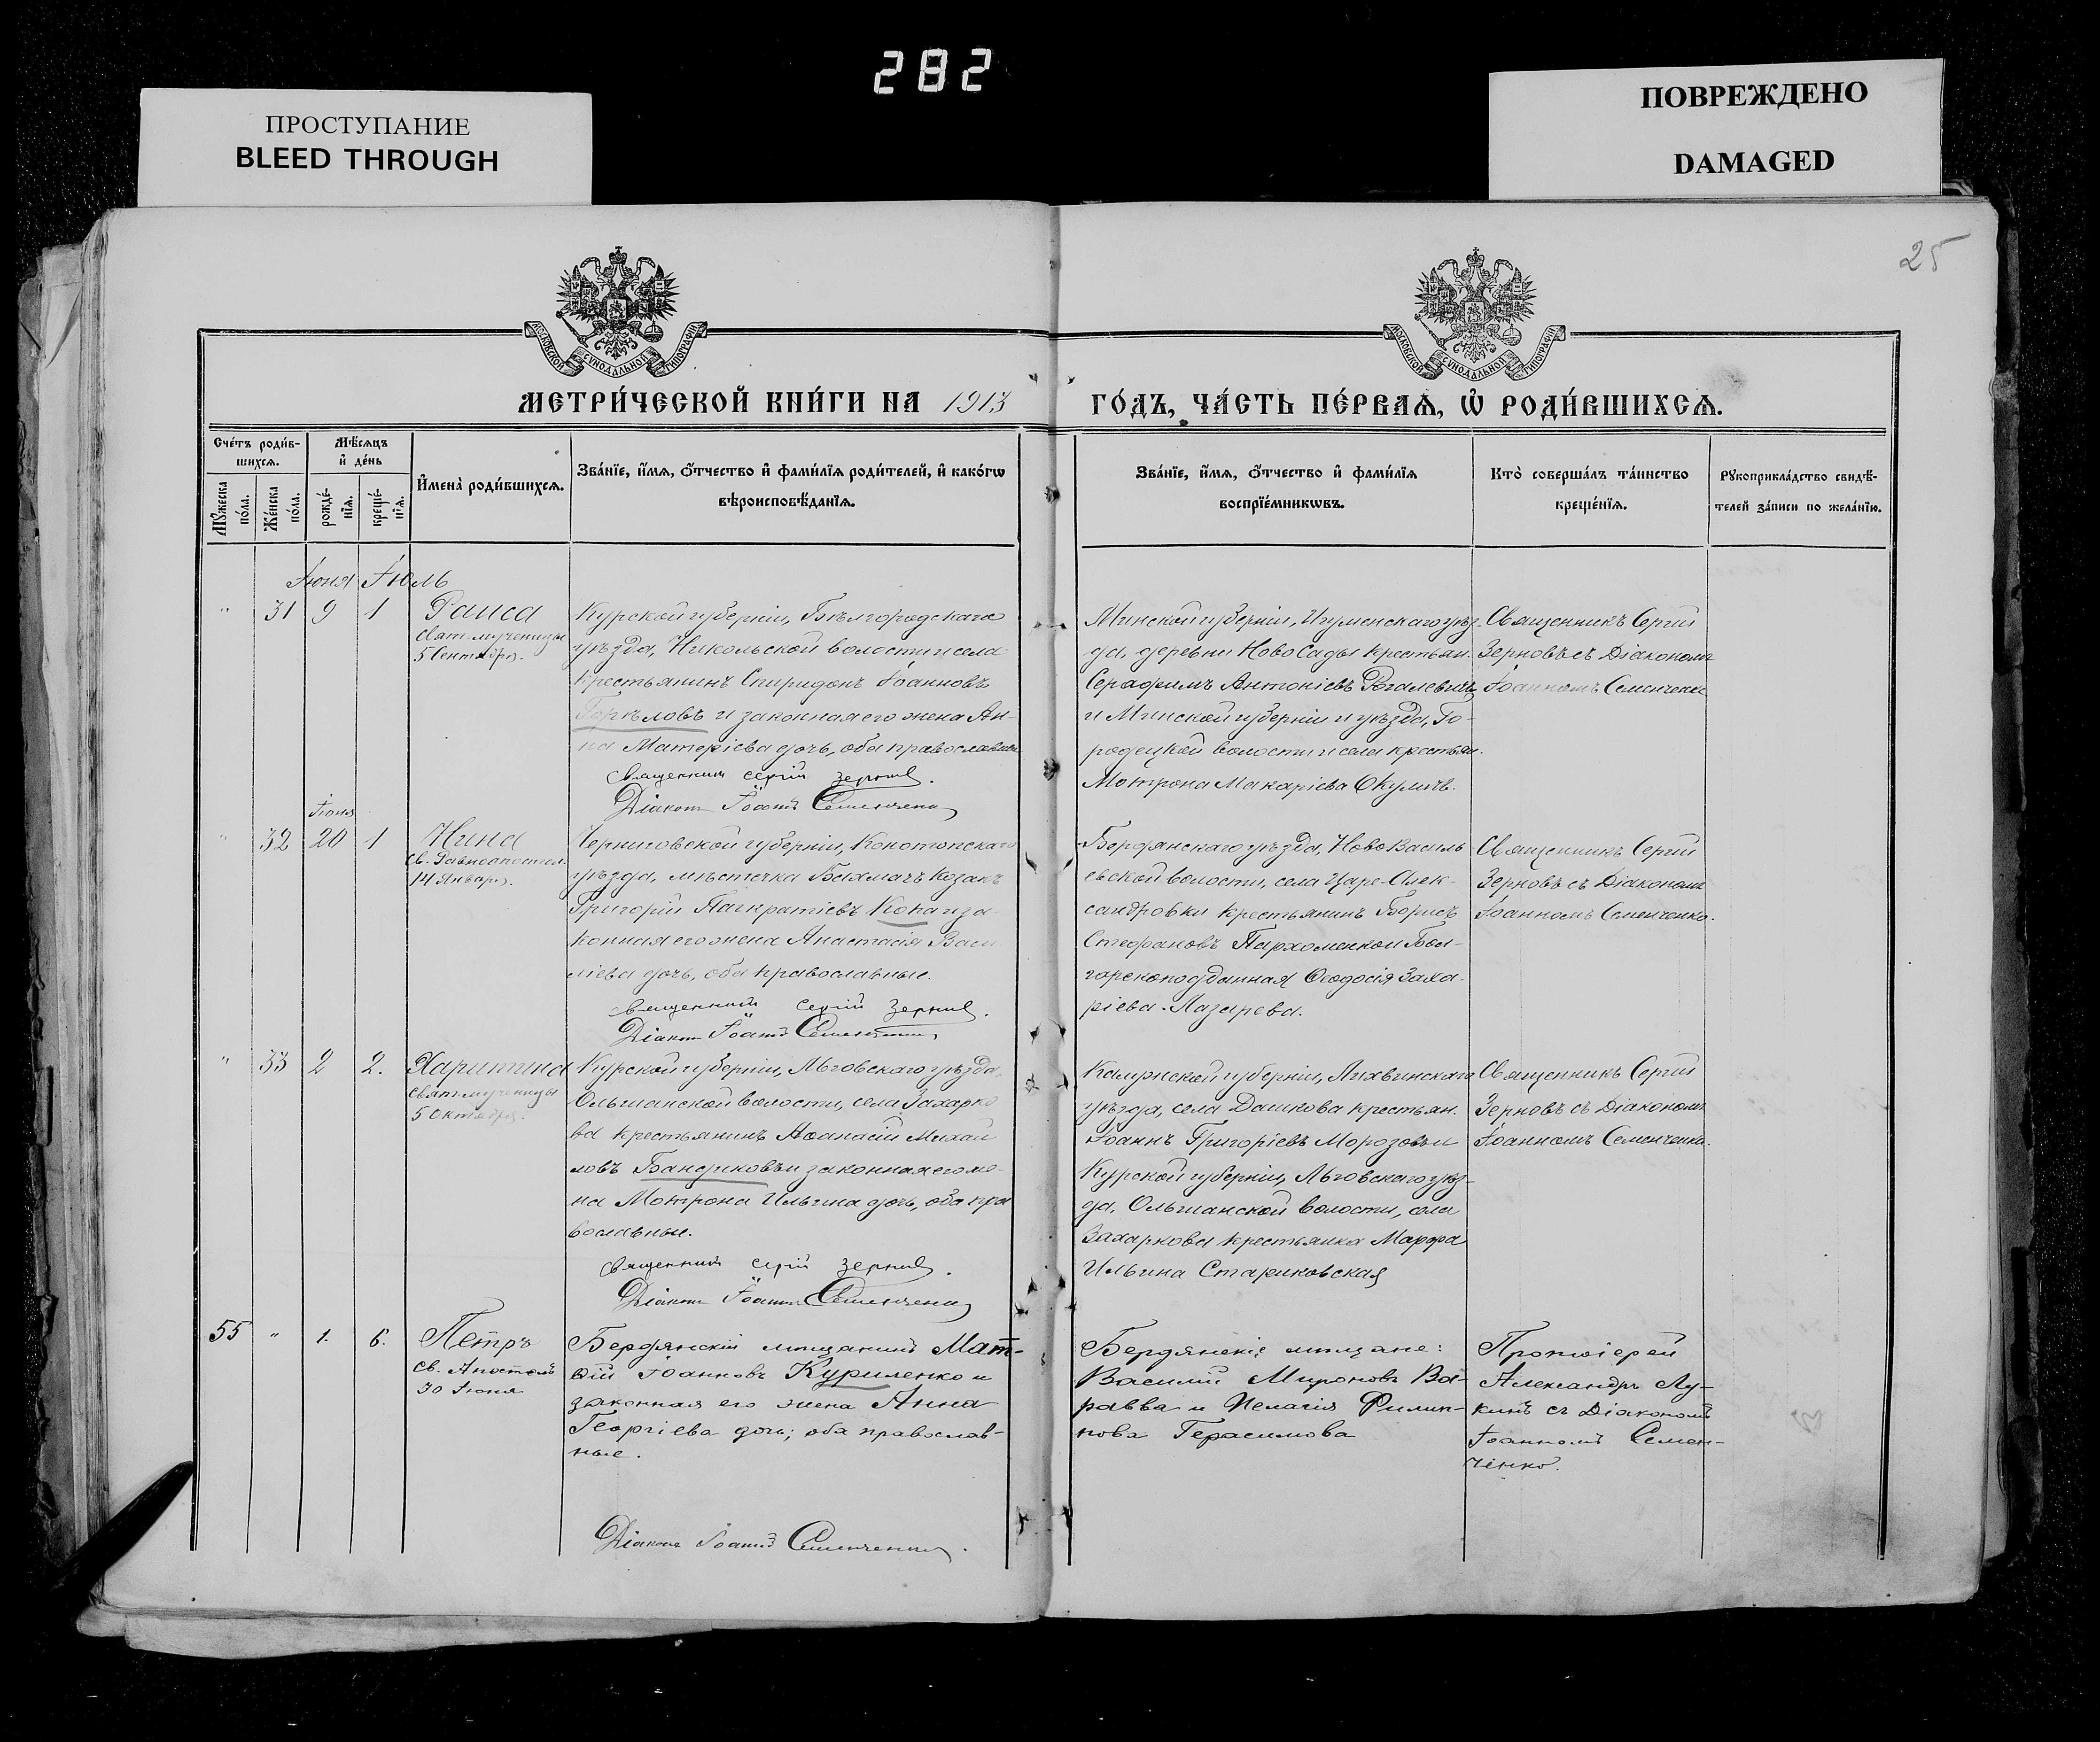 282
ПРОСТУПАНИЕ
BLEED THROUGH
ПОВРЕЖДЕНО
DAMAGED
25
МОСКОВСКОЙ СѴНОДАЛЬНОЙ ТИПОГРАФІИ
МОСКОВСКОЙ СѴНОДАЛЬНОЙ ТИПОГРАФІИ
МЕТРИ́ЧЕСКОЙ КНИ́ГИ НА 1913
ГО́ДЪ, ЧА́СТЬ ПЕ́РВАѦ, Ѡ҆ РОДИ́ВШИХСѦ.
Сче́тъ роди́в-
шихсѧ.
Мѣ́сѧцъ
и҆ де́нь
Мꙋ́жеска
по́ла.
Же́нска
по́ла.
рожде́-
нїѧ.
креще́-
нїѧ.
И҆мена̀ роди́вшихсѧ.
Зва́нїе, и҆́мѧ, ѻ҆́тчество и҆ фами́лїѧ роди́телей, и҆ како́гѡ
вѣроисповѣ́данїѧ.
Зва́нїе, и҆́мѧ, ѻ҆́тчество и҆ фами́лїѧ
воспрїе́мникѡвъ.
Кто̀ соверша́лъ та́инство
креще́нїѧ.
Рꙋкоприкла́дство свидѣ́-
телей за́писи по жела́нїю.
Іюня Іюль
" 31 9 1 Раиса
свят. мученицы
5 Сентября.
Курской губерніи, Бѣлгородскаго
уѣзда, Никольской волости и села
крестьянинъ Спиридонъ Іоанновъ
Горѣловъ и законная его жена Ан-
на Матѳіева дочь, оба православные
священник сергій зернов.
Діакон Іоаннъ Семенченко
Минской губерніи, Игуменскаго уѣз-
да, деревни Ново Сады крестьян.
Серафимъ Антоніевъ Рогалевичъ
и Минской губерніи и уѣзда, Го-
родецкой волости и села крестьян.
Мотрона Макаріева Окуличъ.
Священникъ Сергій
Зерновъ съ Діакономъ
Іоанномъ Семенченко
Іюня
" 32 20 1 Нина
св. Равноапостол.
14 Января.
Черниговской губерніи, Конотопскаго
уѣзда, мѣстечка Бахмачъ козакъ
Григорій Панкратіевъ Копа и за-
конная его жена Анастасія Васи-
ліева дочь, оба православные.
священник сергій зернов.
Діакон Іоаннъ Семенченко
Бердянскаго уѣзда, Ново Василь-
евской волости, села Царе-Алек-
сандровки крестьянинъ Борисъ
Стефановъ Пархоменко и Бол-
гарскоподданная Ѳеодосія Заха-
ріева Лазарева.
Священникъ Сергій
Зерновъ съ Діакономъ
Іоанномъ Семенченко.
" 33 2 2. Харитина
свят. мученицы
5 Октября.
Курской губерніи, Льговскаго уѣзда,
Ольшанской волости, села Захарко
ва крестьянинъ Аѳанасій Михай
ловъ Бандиковъ и законная его же-
на Мотрона Ильина дочь, оба пра
вославные.
священник сергій зернов.
Діакон Іоаннъ Семенченко
Калужской губерніи, Лихвинскаго
уѣзда, села Дашкова крестьян.
Іоаннъ Григоріевъ Морозовъ и
Курской губерніи, Льговскаго уѣз-
да, Ольшанской волости, села
Захаркова крестьянка Марфа
Ильина Стариковская
Священникъ Сергій
Зерновъ съ Діакономъ
Іоанномъ Семенченко.
55 " 1. 6. Петръ
св. Апостолъ
30 Іюня
Бердянскій мѣщанинъ Мат-
ѳій Іоанновъ Куриленко и
законная его жена Анна
Георгіева дочь; оба православ-
ные.
Діаконъ Іоаннъ Семенченко.
Бердянскіе мѣщане:
Василій Мироновъ Ва-
равва и Пелагія Филип-
пова Герасимова
Протоіерей
Александръ Лу-
кинъ съ Діакономъ
Іоанномъ Семен-
ченко.